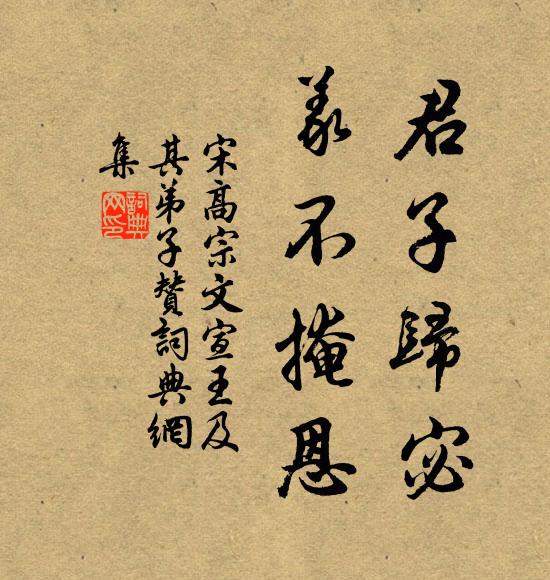 君子歸宓
義不掩恩
宋高宗文宣王及
其弟子贊詞典網
集
詞典網印